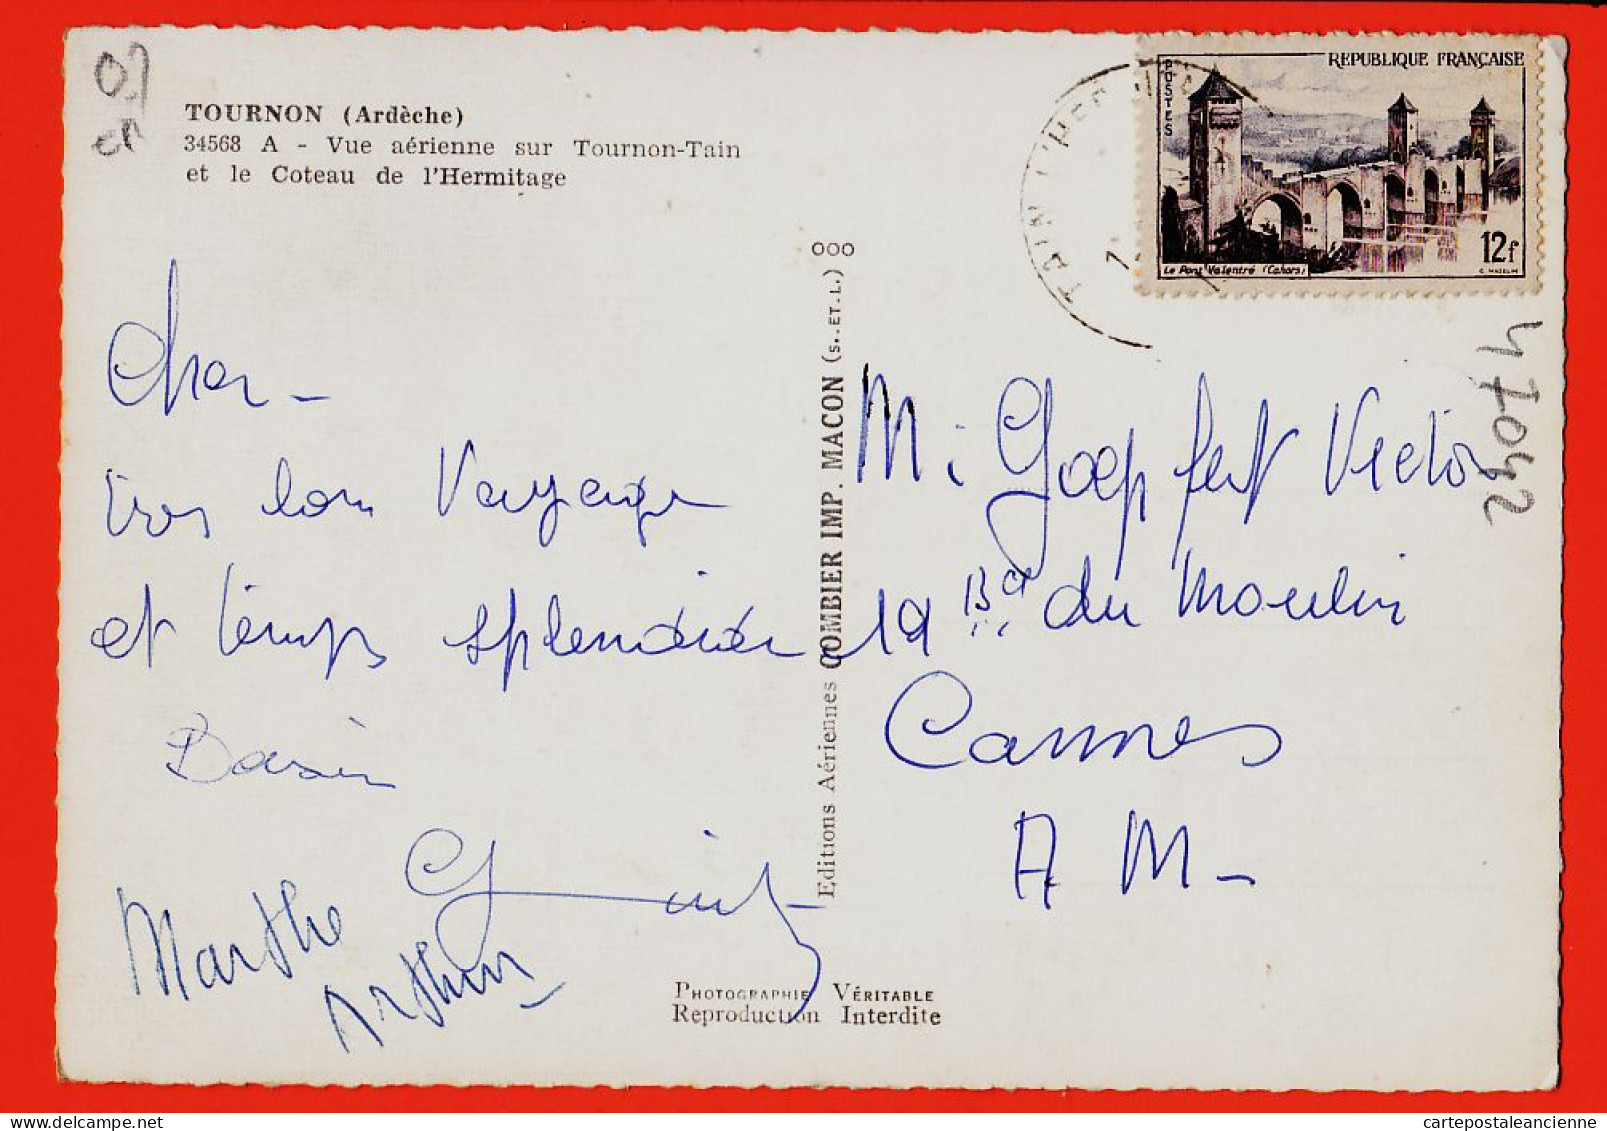 07
TOURNON (Ardèche)
34568 A - Vue aérienne sur Tournon-Tain
et le Coteau de l'Hermitage
REPUBLIQUE FRANÇAISE
POSTES
12f
Le Pont Valentré (Cahors)
C. MAZELIN
TAIN L'HER
47042
Cher -
très bon Voyage
et temps splendide
Marthe
Arthur
Editions Aériennes COMBIER IMP. MACON (S.-ET-L.)
000
M. Goepfert Victor
19 Bd du Moulin
Cannes
A M -
PHOTOGRAPHIE VÉRITABLE
Reproduction Interdite
cartepostaleancienne